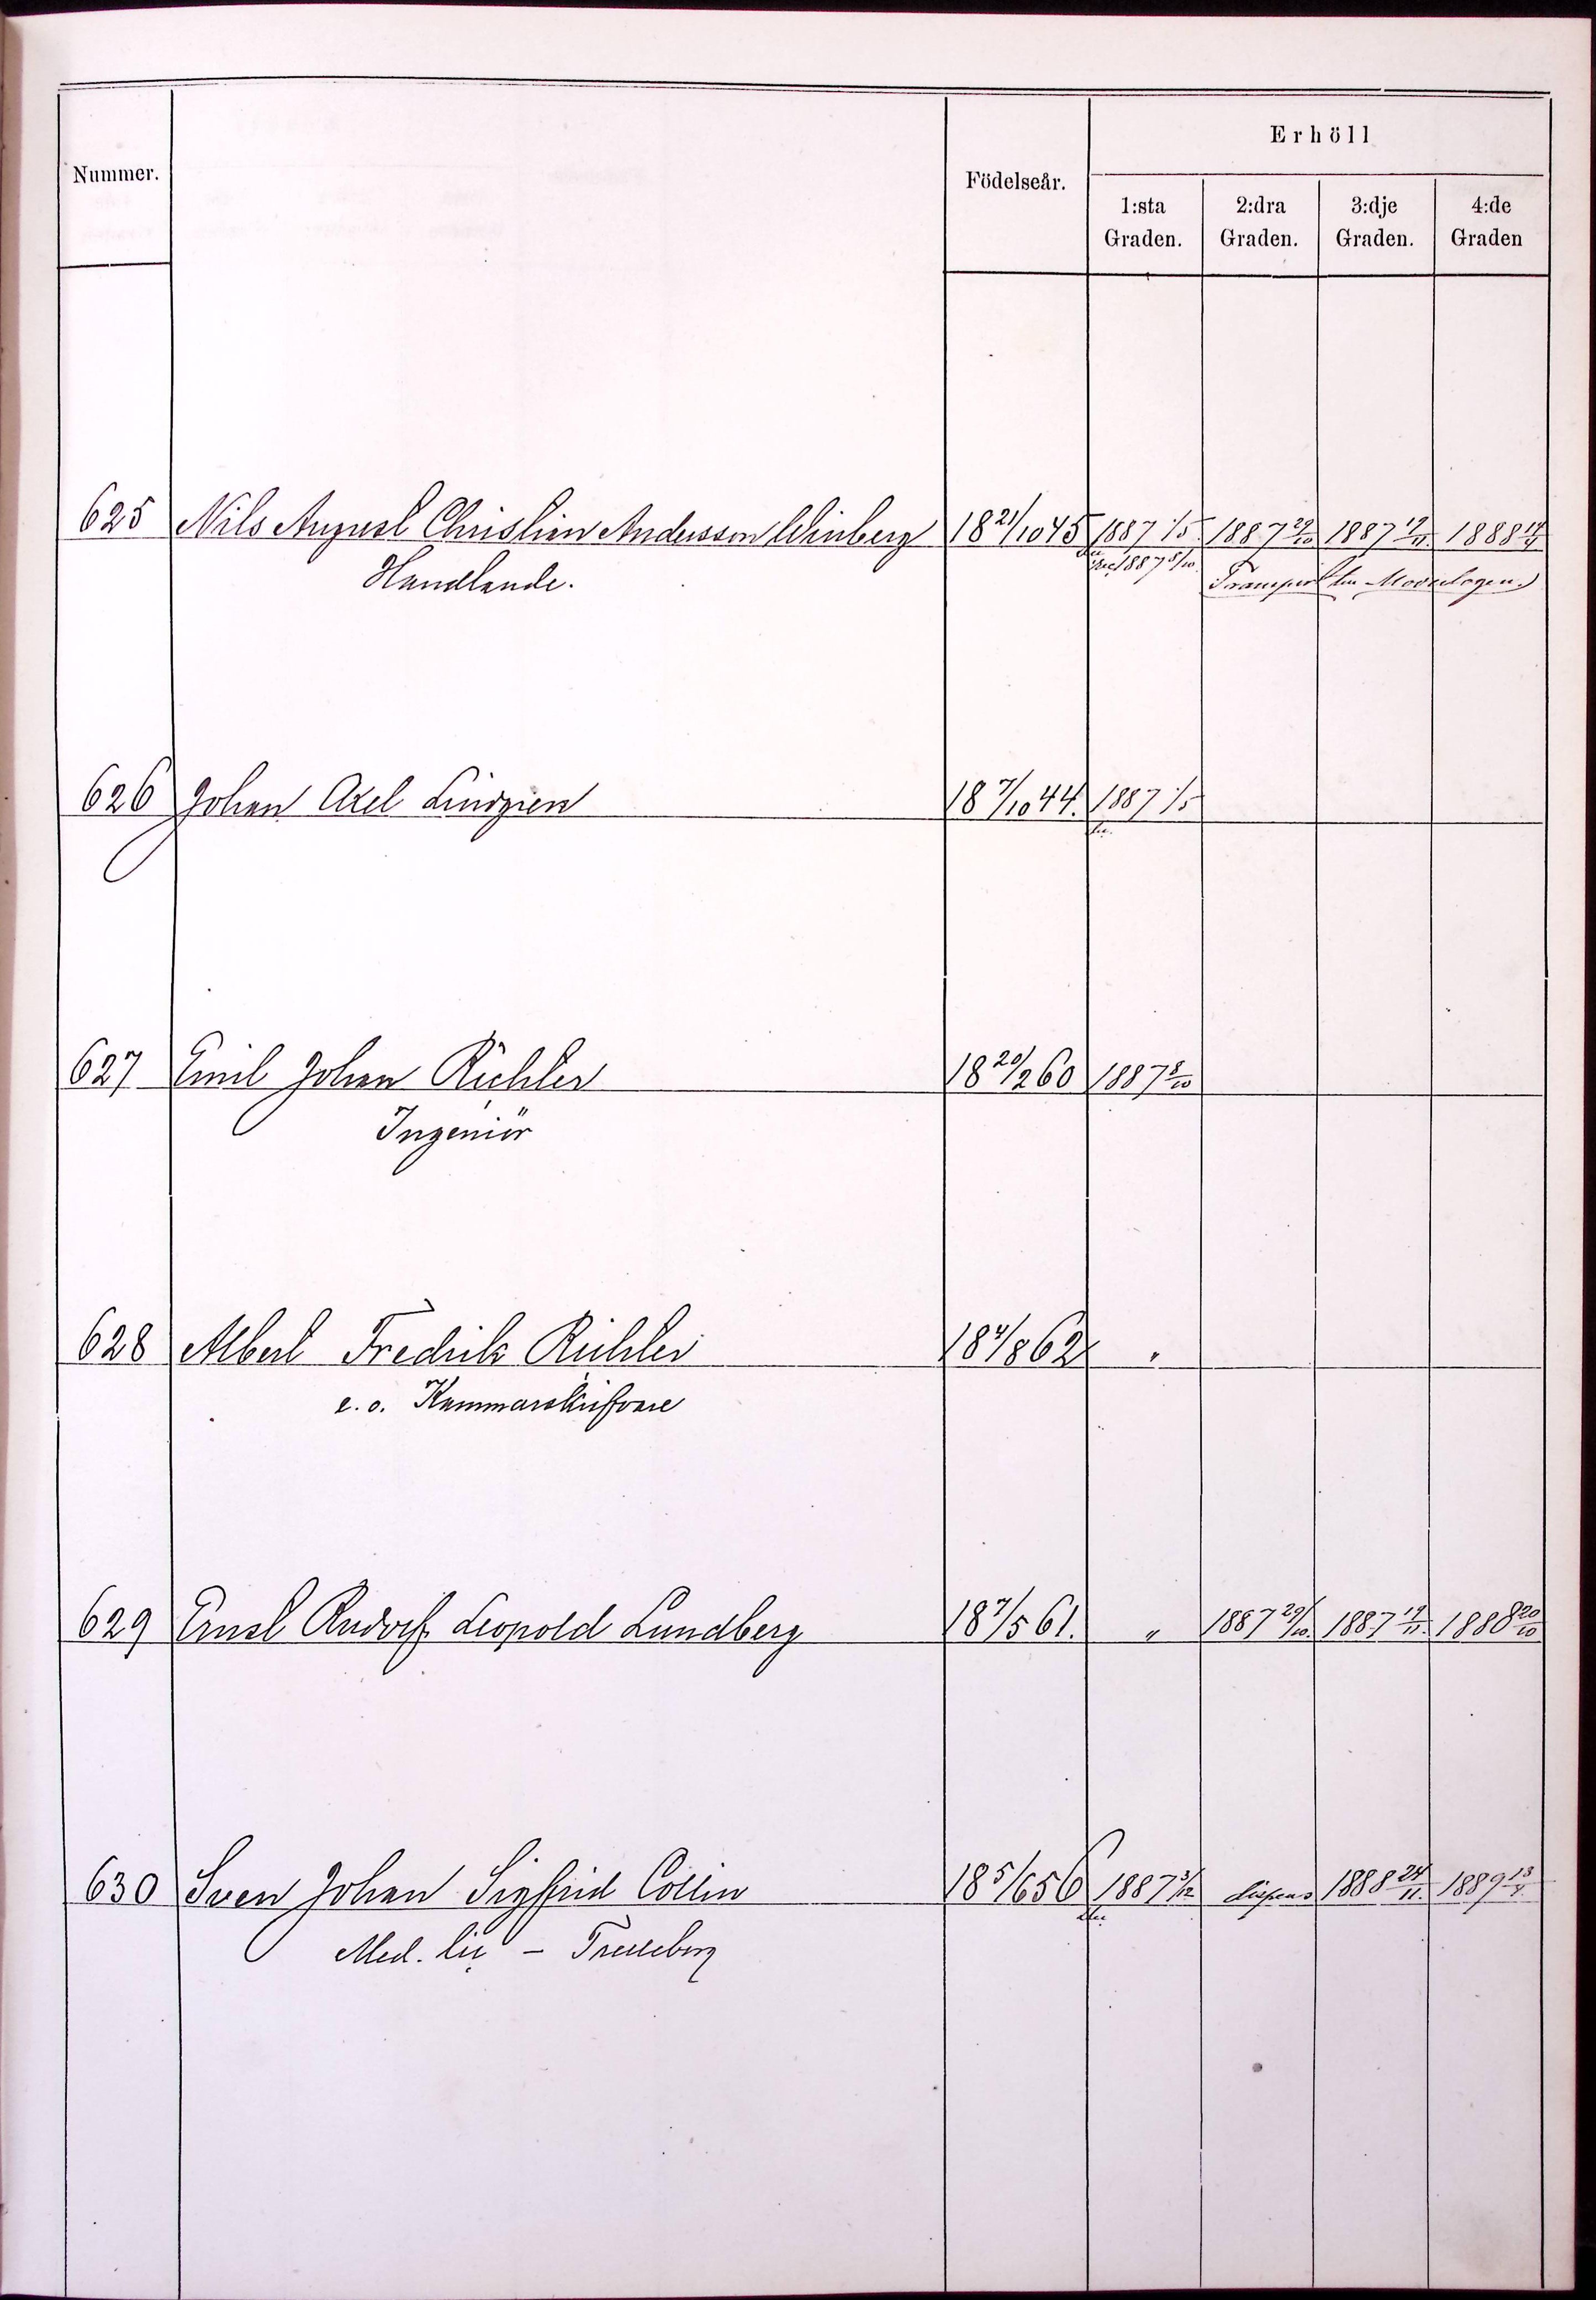 Nummer.
Födelseår.
Erhöll
1:sta Graden.
2:dra Graden.
3:dje Graden.
4:de Graden
625 Nils August Christian Andersson Winberg 18 21/10 45 1887 1/5 1887 29/10 1887 19/11. 1888 14/4
Handlande. 1887 8/10. Transport Moderlogen.
626 Johan Axel Lindgren 18 7/10 44. 1887 1/5
627 Emil Johan Richter 18 20/2 60 1887 8/10
Ingeniör
628 Albert Fredrik Richter 18 4/8 62 "
e. o. Kammarskrifvare
629 Ernst Rudolf Leopold Lundberg 18 7/5 61. " 1887 29/10. 1887 19/11. 1888 20/10
630 Sven Johan Sigfrid Collin 18 5/6 56 1887 3/12 dispens 1888 24/11. 1889 13/4
Med. lic - Trelleborg